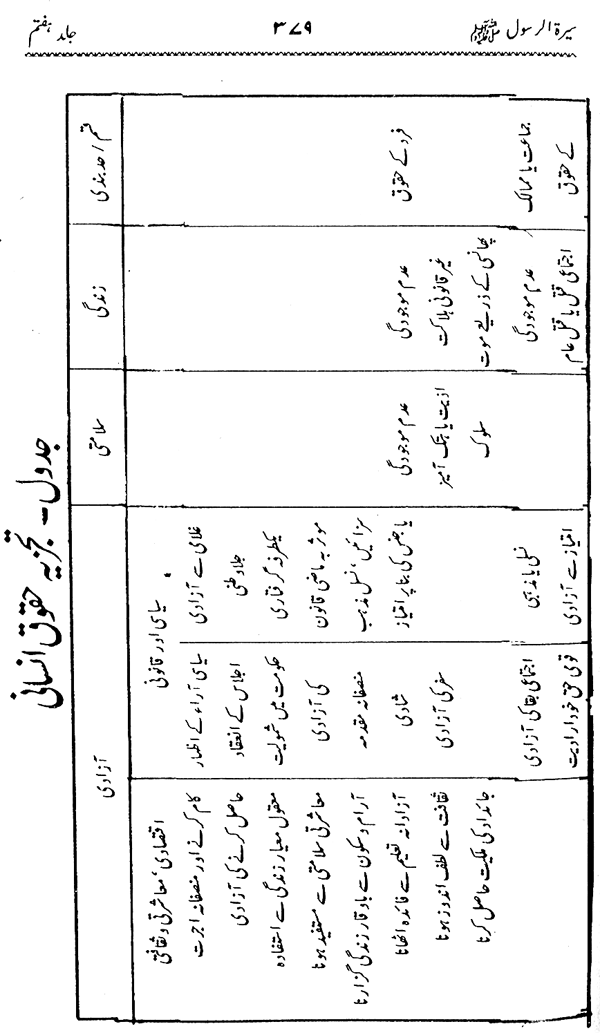 سیرۃ الرسول ﷺ
۳۷۹
جلد ہفتم
جدول - تجزیہ حقوق انسانی
قسم / حد بندی
زندگی
سلامتی
آزادی
سیاسی اور قانونی
اقتصادی، معاشرتی و ثقافتی
فرد کے حقوق
عدم موجودگی
غیر قانونی ہلاکت
پھانسی کے ذریعے موت
عدم موجودگی
اذیت یا ہتک آمیز
سلوک
غلامی سے آزادی
جلاوطنی
یکطرفہ گرفتاری
موثر بہ ماضی قانون
سزائیں، نسل مذہب
یا جنس کی بنا پر امتیاز
سیاسی آراء کے اظہار
اجلاس کے انعقاد
حکومت میں شمولیت
کی آزادی
منصفانہ مقدمہ
شادی
سفر کی آزادی
کام کرنے اور منصفانہ اجرت
حاصل کرنے کی آزادی
معقول معیار زندگی سے استفادہ
معاشرتی سلامتی سے مستفید ہونا
آرام و سکون سے باوقار زندگی گزارنا
آزادانہ تعلیم سے فائدہ اٹھانا
ثقافت سے لطف اندوز ہونا
جائداد کی ملکیت حاصل کرنا
جماعت یا ممالک
کے حقوق
عدم موجودگی
اجتماعی قتل یا قتل عام
نسلی یا مذہبی
امتیاز سے آزادی
اجتماعی بقا کی آزادی
قومی حق خود ارادیت